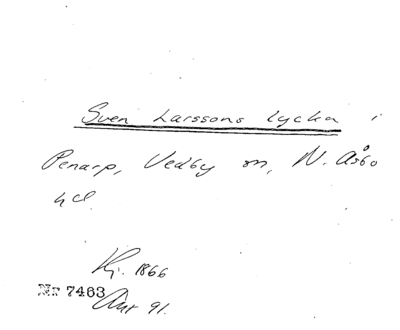 Sven Larssons lycka i
Penarp, Vedby sn, N. Åsbo
hd
Kj. 1866
Nr 7463
Ant 91.